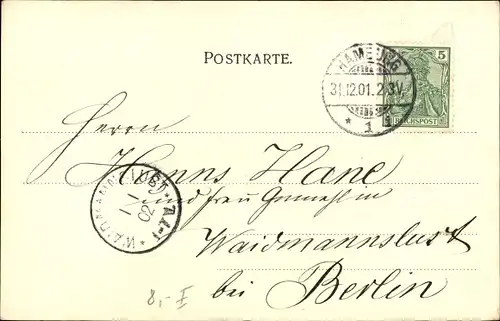 POSTKARTE.
HAMBURG
31.12.01. 2-3 V.
* 1 i
5
REICHSPOST
Herrn
Hanns Hane
und frau Gemahl in
WAIDMANNSLUST
1 1 02
7-8 V.
Waidmannslust
bei Berlin
8,- I